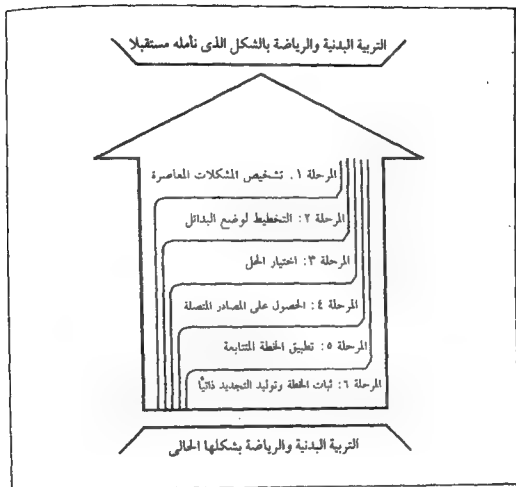 التربية البدنية والرياضة بالشكل الذى نأمله مستقبلا
المرحلة ١. تشخيص المشكلات المعاصرة
المرحلة ٢: التخطيط لوضع البدائل
المرحلة ٣: اختيار الحل
المرحلة ٤: الحصول على المصادر المتصلة
المرحلة ٥: تطبيق الخطة المتتابعة
المرحلة ٦: ثبات الخطة وتوليد التجديد ذاتيًا
التربية البدنية والرياضة بشكلها الحالى